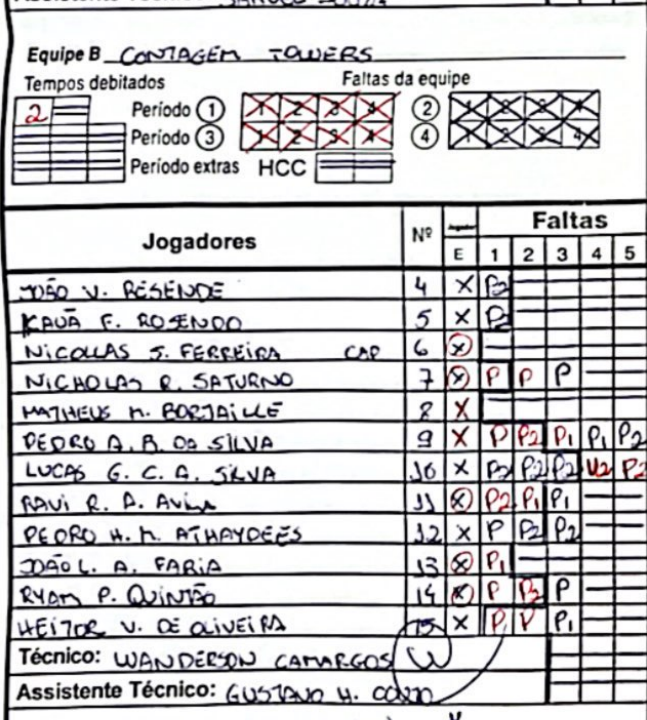 Equipe B CONTAGEM TOWERS
Tempos debitados Faltas da equipe
2 Período 1 1 2 3 4 2 1 2 3 4
Período 3 1 2 3 4 4 1 2 3 4
Período extras HCC
Jogadores Nº Jogador Faltas
E 1 2 3 4 5
JOÃO V. RESENDE 4 X P2
KAUÃ F. ROSENDO 5 X P2
NICOLLAS S. FERREIRA CAP 6 X
NICHOLAS R. SATURNO 7 X P P P
MATHEUS M. BORTAILLE 8 X
PEDRO A. B. DA SILVA 9 X P P2 P1 P1 P2
LUCAS G. C. A. SILVA 10 X P2 P2 P2 U2 P2
RAVI R. D. AVILA 11 X P2 P1 P1
PEDRO H. M. ATHAYDEES 12 X P P2 P2
JOÃO L. A. FARIA 13 X P1
RYAN P. QUINTÃO 14 X P P2 P
HEITOR V. DE OLIVEIRA 15 X P P P1
Técnico: WANDERSON CAMARGOS
Assistente Técnico: GUSTAVO H.